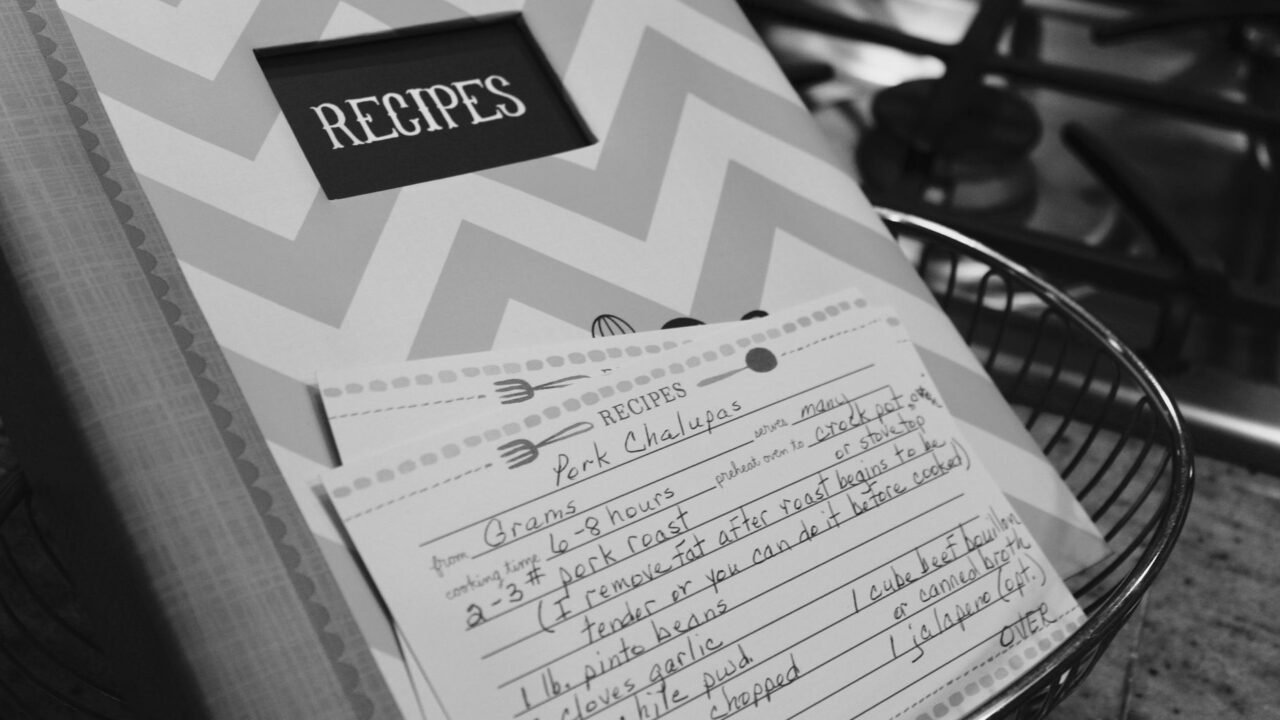 RECIPES
RECIPES
Pork Chalupas
from Grams serves many
cooking time 6-8 hours preheat oven to crock pot or
or stovetop
2-3 # pork roast
(I remove fat after roast begins to be
tender or you can do it before cooked)
1 lb. pinto beans
cloves garlic 1 cube beef bouillon
or canned broth
chile pwd. 1 jalapeno (opt.)
chopped
OVER